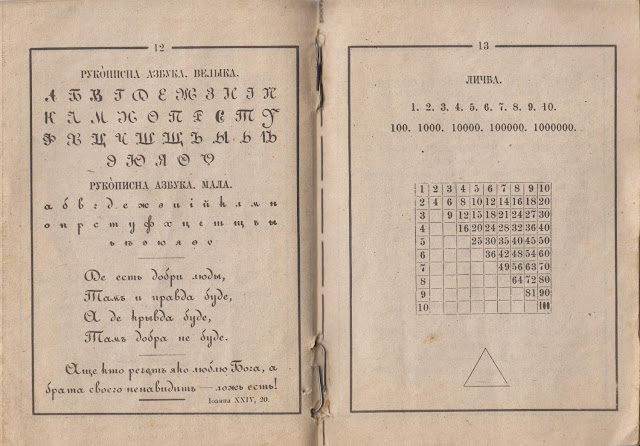 12
РУКО̀ПИСНА АЗБУКА. ВЕЛЫКА.
А Б В Г Д Е Ж З И І П
К Л М Н О П Р С Т У
Ф Х Ц Ч Ш Щ Ъ Ы Ь Ѣ
Э Ю Я Ѳ Ѵ
РУКО̀ПИСНА АЗБУКА. МАЛА.
а б в г д е ж з и і й к л м н
о п р с т у ф х ц ч ш щ ъ ы
ь ѣ э ю я ѳ ѵ
Де есть добри люды,
Тамъ и правда буде,
А де крывда буде,
Тамъ добра не буде.
Аще кто речетъ яко люблю Бога, а
брата своего ненавидить — ложь есть!
Іоанна XXIV, 20.
13
ЛИЧБА.
1. 2. 3. 4. 5. 6. 7. 8. 9. 10.
100. 1000. 10000. 100000. 1000000.
1 2 3 4 5 6 7 8 9 10
2 4 6 8 10 12 14 16 18 20
3 9 12 15 18 21 24 27 30
4 16 20 24 28 32 36 40
5 25 30 35 40 45 50
6 36 42 48 54 60
7 49 56 63 70
8 64 72 80
9 81 90
10 100